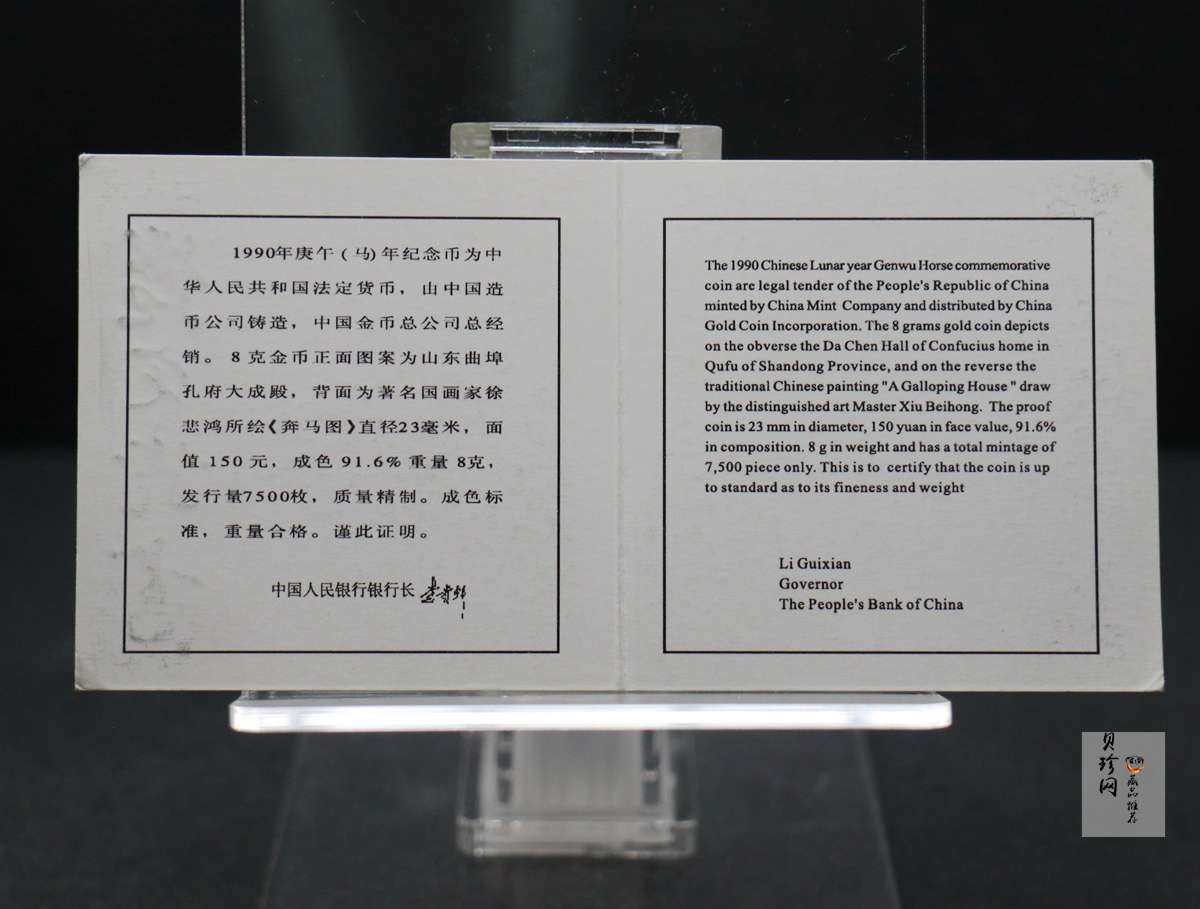 1990年庚午(马)年纪念币为中
华人民共和国法定货币，由中国造
币公司铸造，中国金币总公司总经
销。8克金币正面图案为山东曲埠
孔府大成殿，背面为著名国画家徐
悲鸿所绘《奔马图》直径23毫米，面
值150元，成色91.6%重量8克，
发行量7500枚，质量精制。成色标
准，重量合格。谨此证明。
中国人民银行银行长 李贵鲜
The 1990 Chinese Lunar year Genwu Horse commemorative
coin are legal tender of the People's Republic of China
minted by China Mint Company and distributed by China
Gold Coin Incorporation. The 8 grams gold coin depicts
on the obverse the Da Chen Hall of Confucius home in
Qufu of Shandong Province, and on the reverse the
traditional Chinese painting "A Galloping House " draw
by the distinguished art Master Xiu Beihong. The proof
coin is 23 mm in diameter, 150 yuan in face value, 91.6%
in composition. 8 g in weight and has a total mintage of
7,500 piece only. This is to certify that the coin is up
to standard as to its fineness and weight
Li Guixian
Governor
The People's Bank of China
贝珍网
藏品推荐